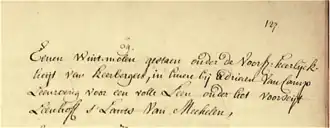 127
Eenen Wintmolen gestaen onder de Voors: heerlyck
heyt van Keerbergen, in Leenen bij Adriaen Van Camp
voor een volle Leen onder het voorschr
Leenhoff s Lants Van Mechelen,